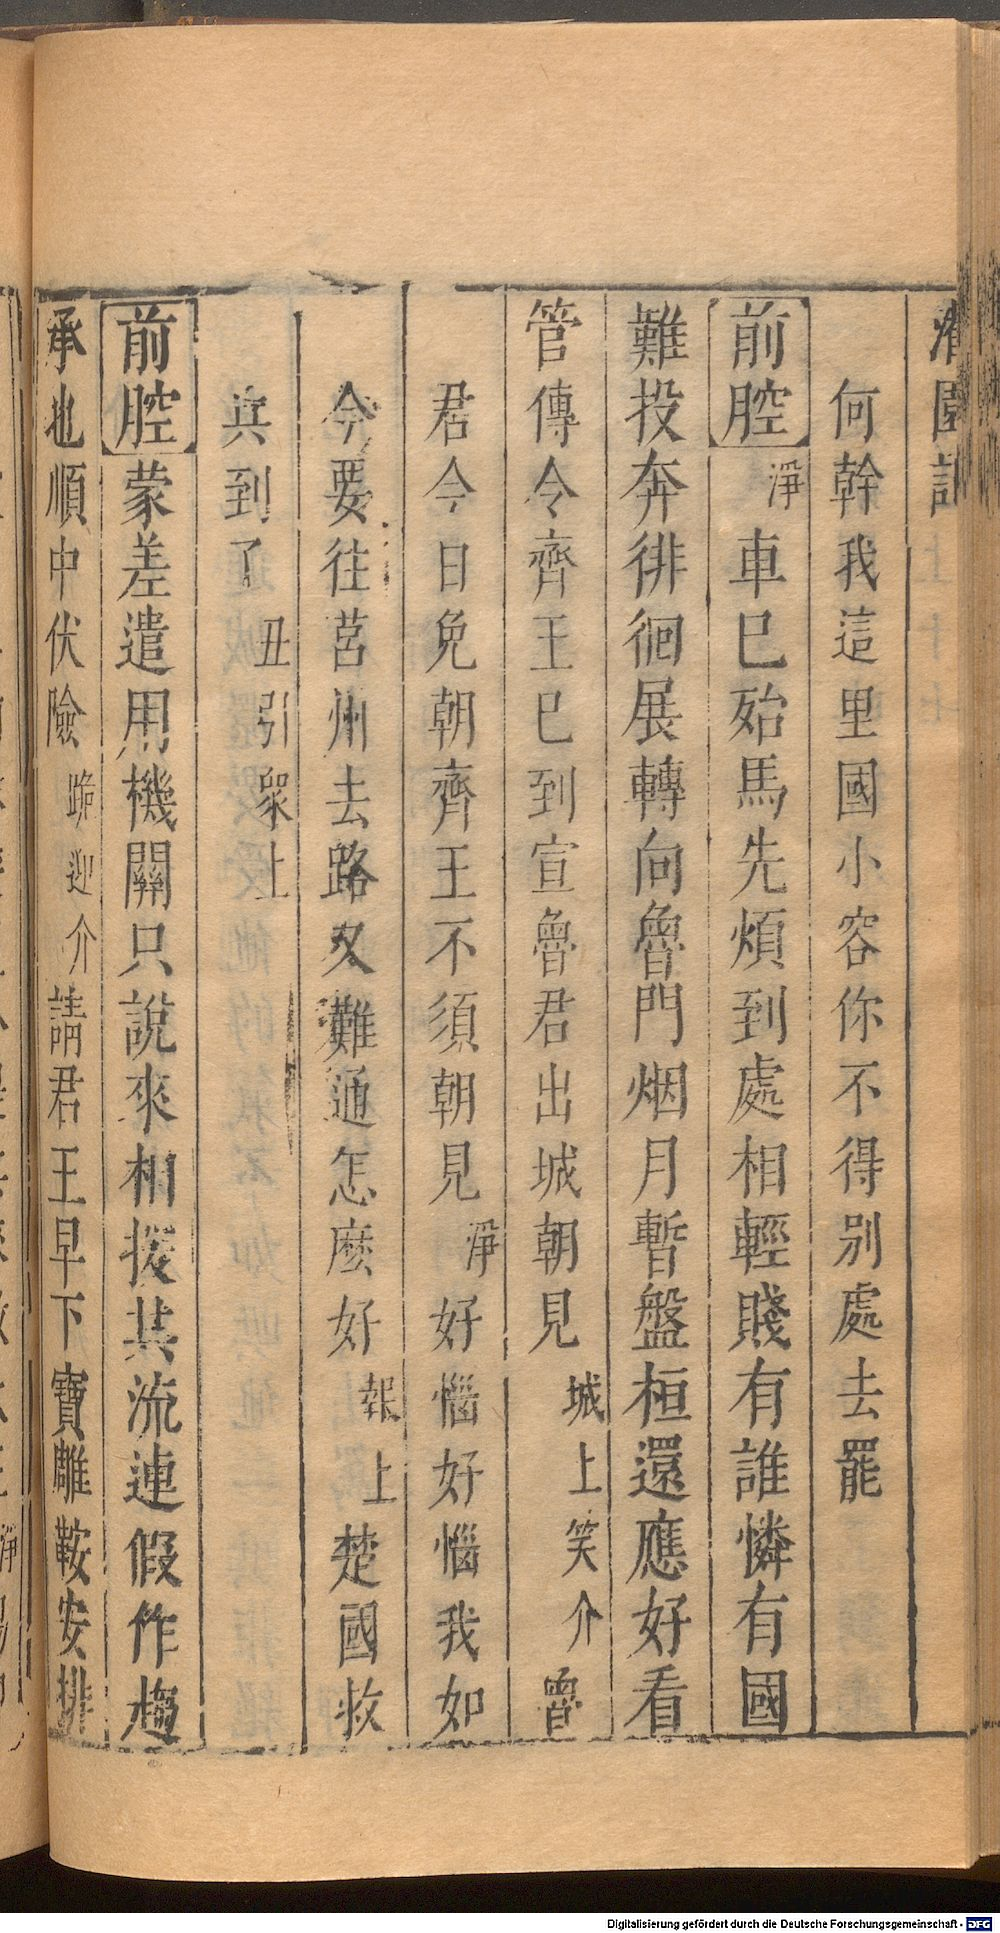 灌園記
何幹我這里國小容你不得别處去罷
前腔 淨車巳殆馬先煩到處相輕賤有誰憐有國
難投奔徘徊展轉向魯門烟月暫盤桓還應好看
管傳令齊王巳到宣魯君出城朝見城上笑介魯
君今日免朝齊王不須朝見淨好惱好惱我如
今要往莒州去路又難通怎麽好報上楚國救
兵到了丑引衆上
前腔 蒙差遣用機關只說來相援其流連假作趨
承也順中伏險跪迎介請君王早下寶雕鞍安排
Digitalisierung gefördert durch die Deutsche Forschungsgemeinschaft - DFG